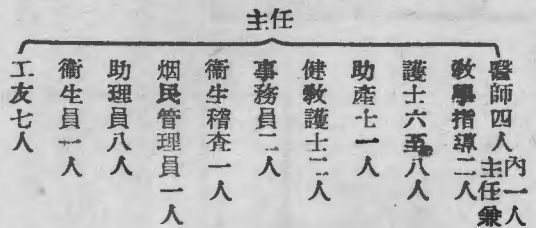 主任
醫師四人內一人主任兼
敎學指導二人
護士六至八人
助產士一人
健敎護士二人
事務員二人
衞生稽查一人
烟民管理員一人
助理員八人
衞生員一人
工友七人